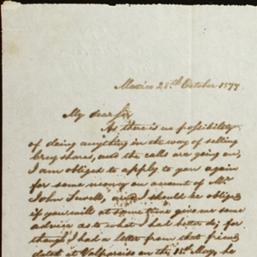 Mexico 28th October 1877
My dear Sir
As there is no possibility
of doing anything in the way of selling
shares, and the calls are going on,
I am obliged to apply to you again
for some money on account of Mr
John and I should be obliged
if you will at same time give me some
advice as to what I had better do; for
though I had a letter from that friend
dated at Valparaiso on the 18th May, he